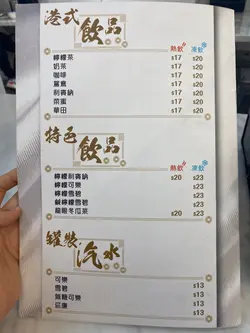 港式飲品
熱飲 凍飲
檸檬茶 $17 $20
奶茶 $17 $20
咖啡 $17 $20
鴛鴦 $17 $20
利賓納 $17 $20
菜蜜 $17 $20
華田 $17 $20
特色飲品
熱飲 凍飲
檸檬利賓納 $20 $23
檸檬可樂 $23
檸檬雪碧 $23
鹹檸檬雪碧 $23
龍眼冬瓜茶 $20 $23
罐裝汽水
可樂 $13
雪碧 $13
無糖可樂 $13
忌廉 $13